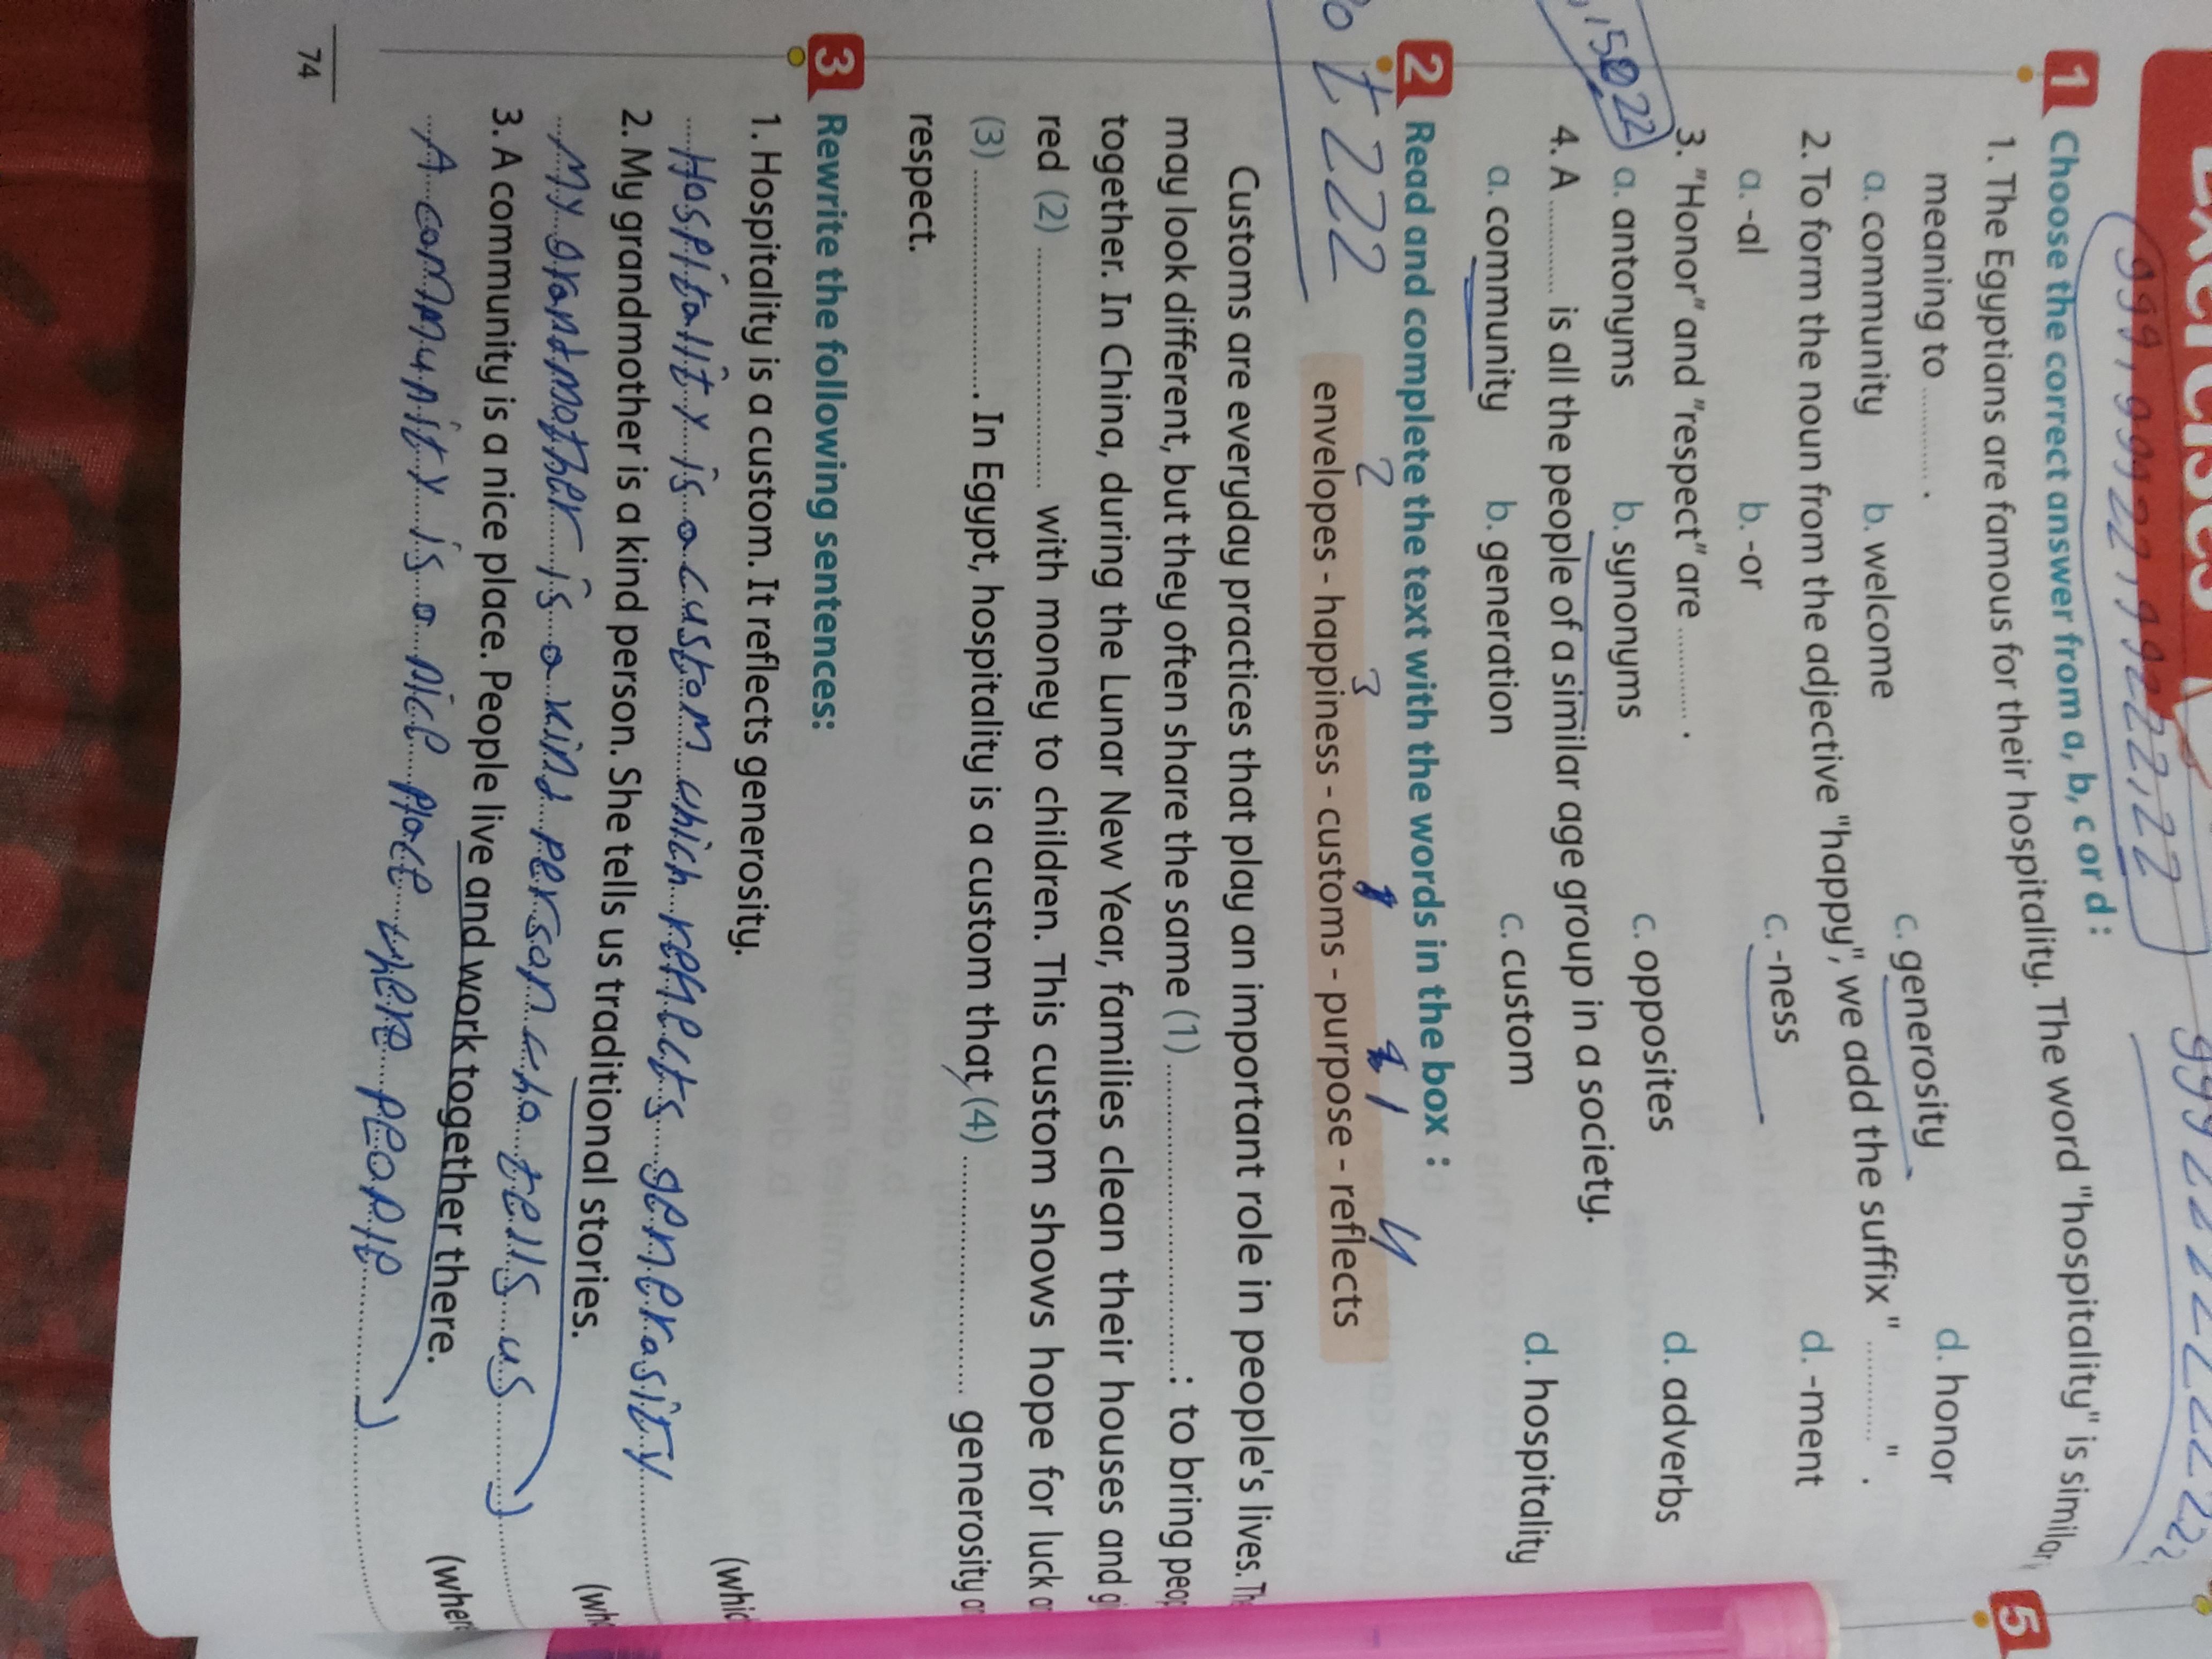 Exercises
999,9999221992222,22
1 Choose the correct answer from a, b, c or d :
1. The Egyptians are famous for their hospitality. The word "hospitality" is similar
meaning to .......... .
a. community b. welcome c. generosity d. honor
2. To form the noun from the adjective "happy", we add the suffix " .......... " .
a. -al b. -or c. -ness d. -ment
3. "Honor" and "respect" are .......... .
a. antonyms b. synonyms c. opposites d. adverbs
4. A .......... is all the people of a similar age group in a society.
a. community b. generation c. custom d. hospitality
5
2 Read and complete the text with the words in the box :
2 3 1 4
envelopes - happiness - customs - purpose - reflects
Customs are everyday practices that play an important role in people's lives.
may look different, but they often share the same (1) .................... : to bring
together. In China, during the Lunar New Year, families clean their houses and
red (2) .................... with money to children. This custom shows hope for luck
(3) .................... . In Egypt, hospitality is a custom that (4) .................... generosity
respect.
3 Rewrite the following sentences:
1. Hospitality is a custom. It reflects generosity.
Hospitality is a custom which reflects generasity
2. My grandmother is a kind person. She tells us traditional stories.
My grandmother is a kind person who tells us
3. A community is a nice place. People live and work together there.
A community is a nice place where people
74